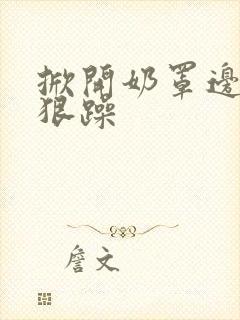 掀開奶罩邊
狠躁
詹文